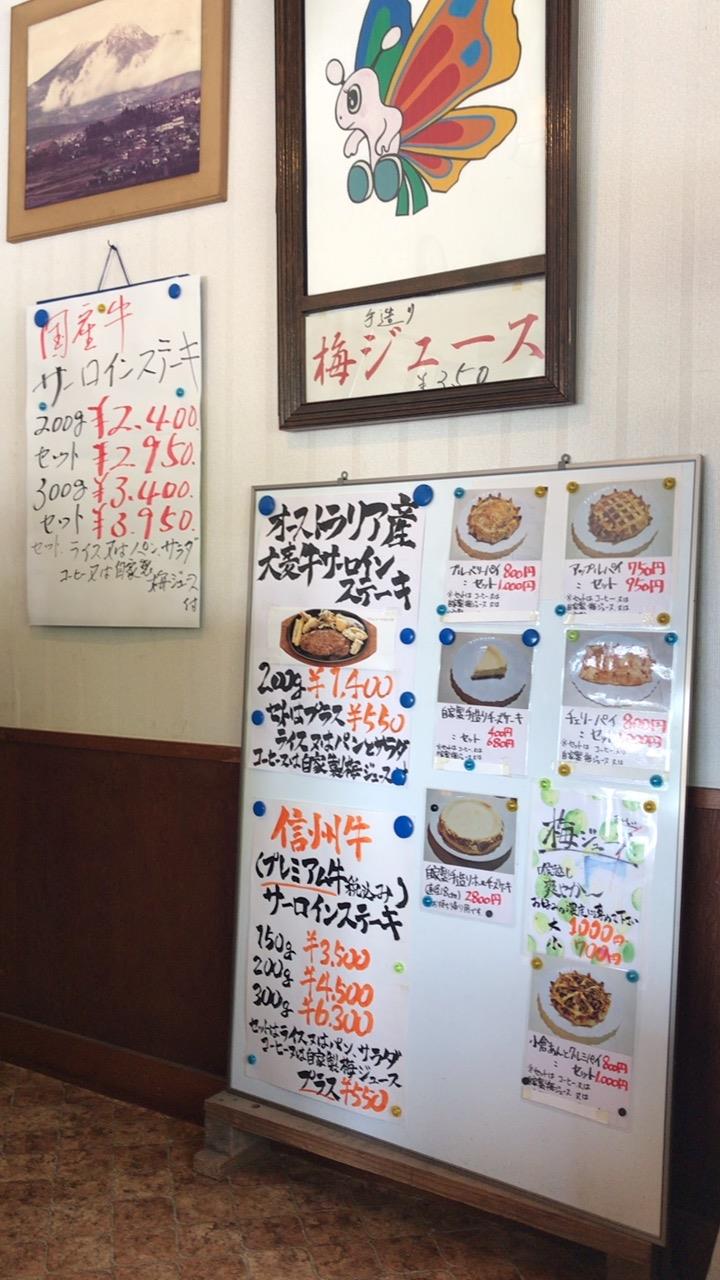 手造り
梅ジュース
¥350
国産牛
サーロインステーキ
200g ¥2.400.
セット ¥2.950.
300g ¥3.400.
セット ¥3.950.
セット、ライス又はパン、サラダ
コーヒー又は自家製梅ジュース
付
オーストラリア産
大麦牛サーロイン
ステーキ
200g ¥1,400
セットはプラス ¥550
ライス又はパンとサラダ
コーヒー又は自家製梅ジュース
信州牛
(プレミアム牛 税込み)
サーロインステーキ
150g ¥3.500
200g ¥4.500
300g ¥6.300
セットはライス又はパン、サラダ
コーヒー又は自家製梅ジュース
プラス ¥550
ブルーベリーパイ 800円
: セット 1,000円
※セットは コーヒー又は
自家製梅ジュース
アップルパイ 750円
: セット 950円
※セットは コーヒー又は
自家製梅ジュース
自家製手造りチーズケーキ
400円
: セット 680円
※セットは コーヒー又は
自家製梅ジュース
チェリーパイ 800円
: セット 1,000円
※セットは コーヒー又は
自家製梅ジュース 又は
自家製手造りホールチーズケーキ
(直径18cm) 2800円
梅ジュース
爽やか〜
お好みの濃度に薄めて下さい
大 1000円
小 700円
小倉あんとクルミパイ 800円
: セット 1,000円
※セットは コーヒー又は
自家製梅ジュース 又は